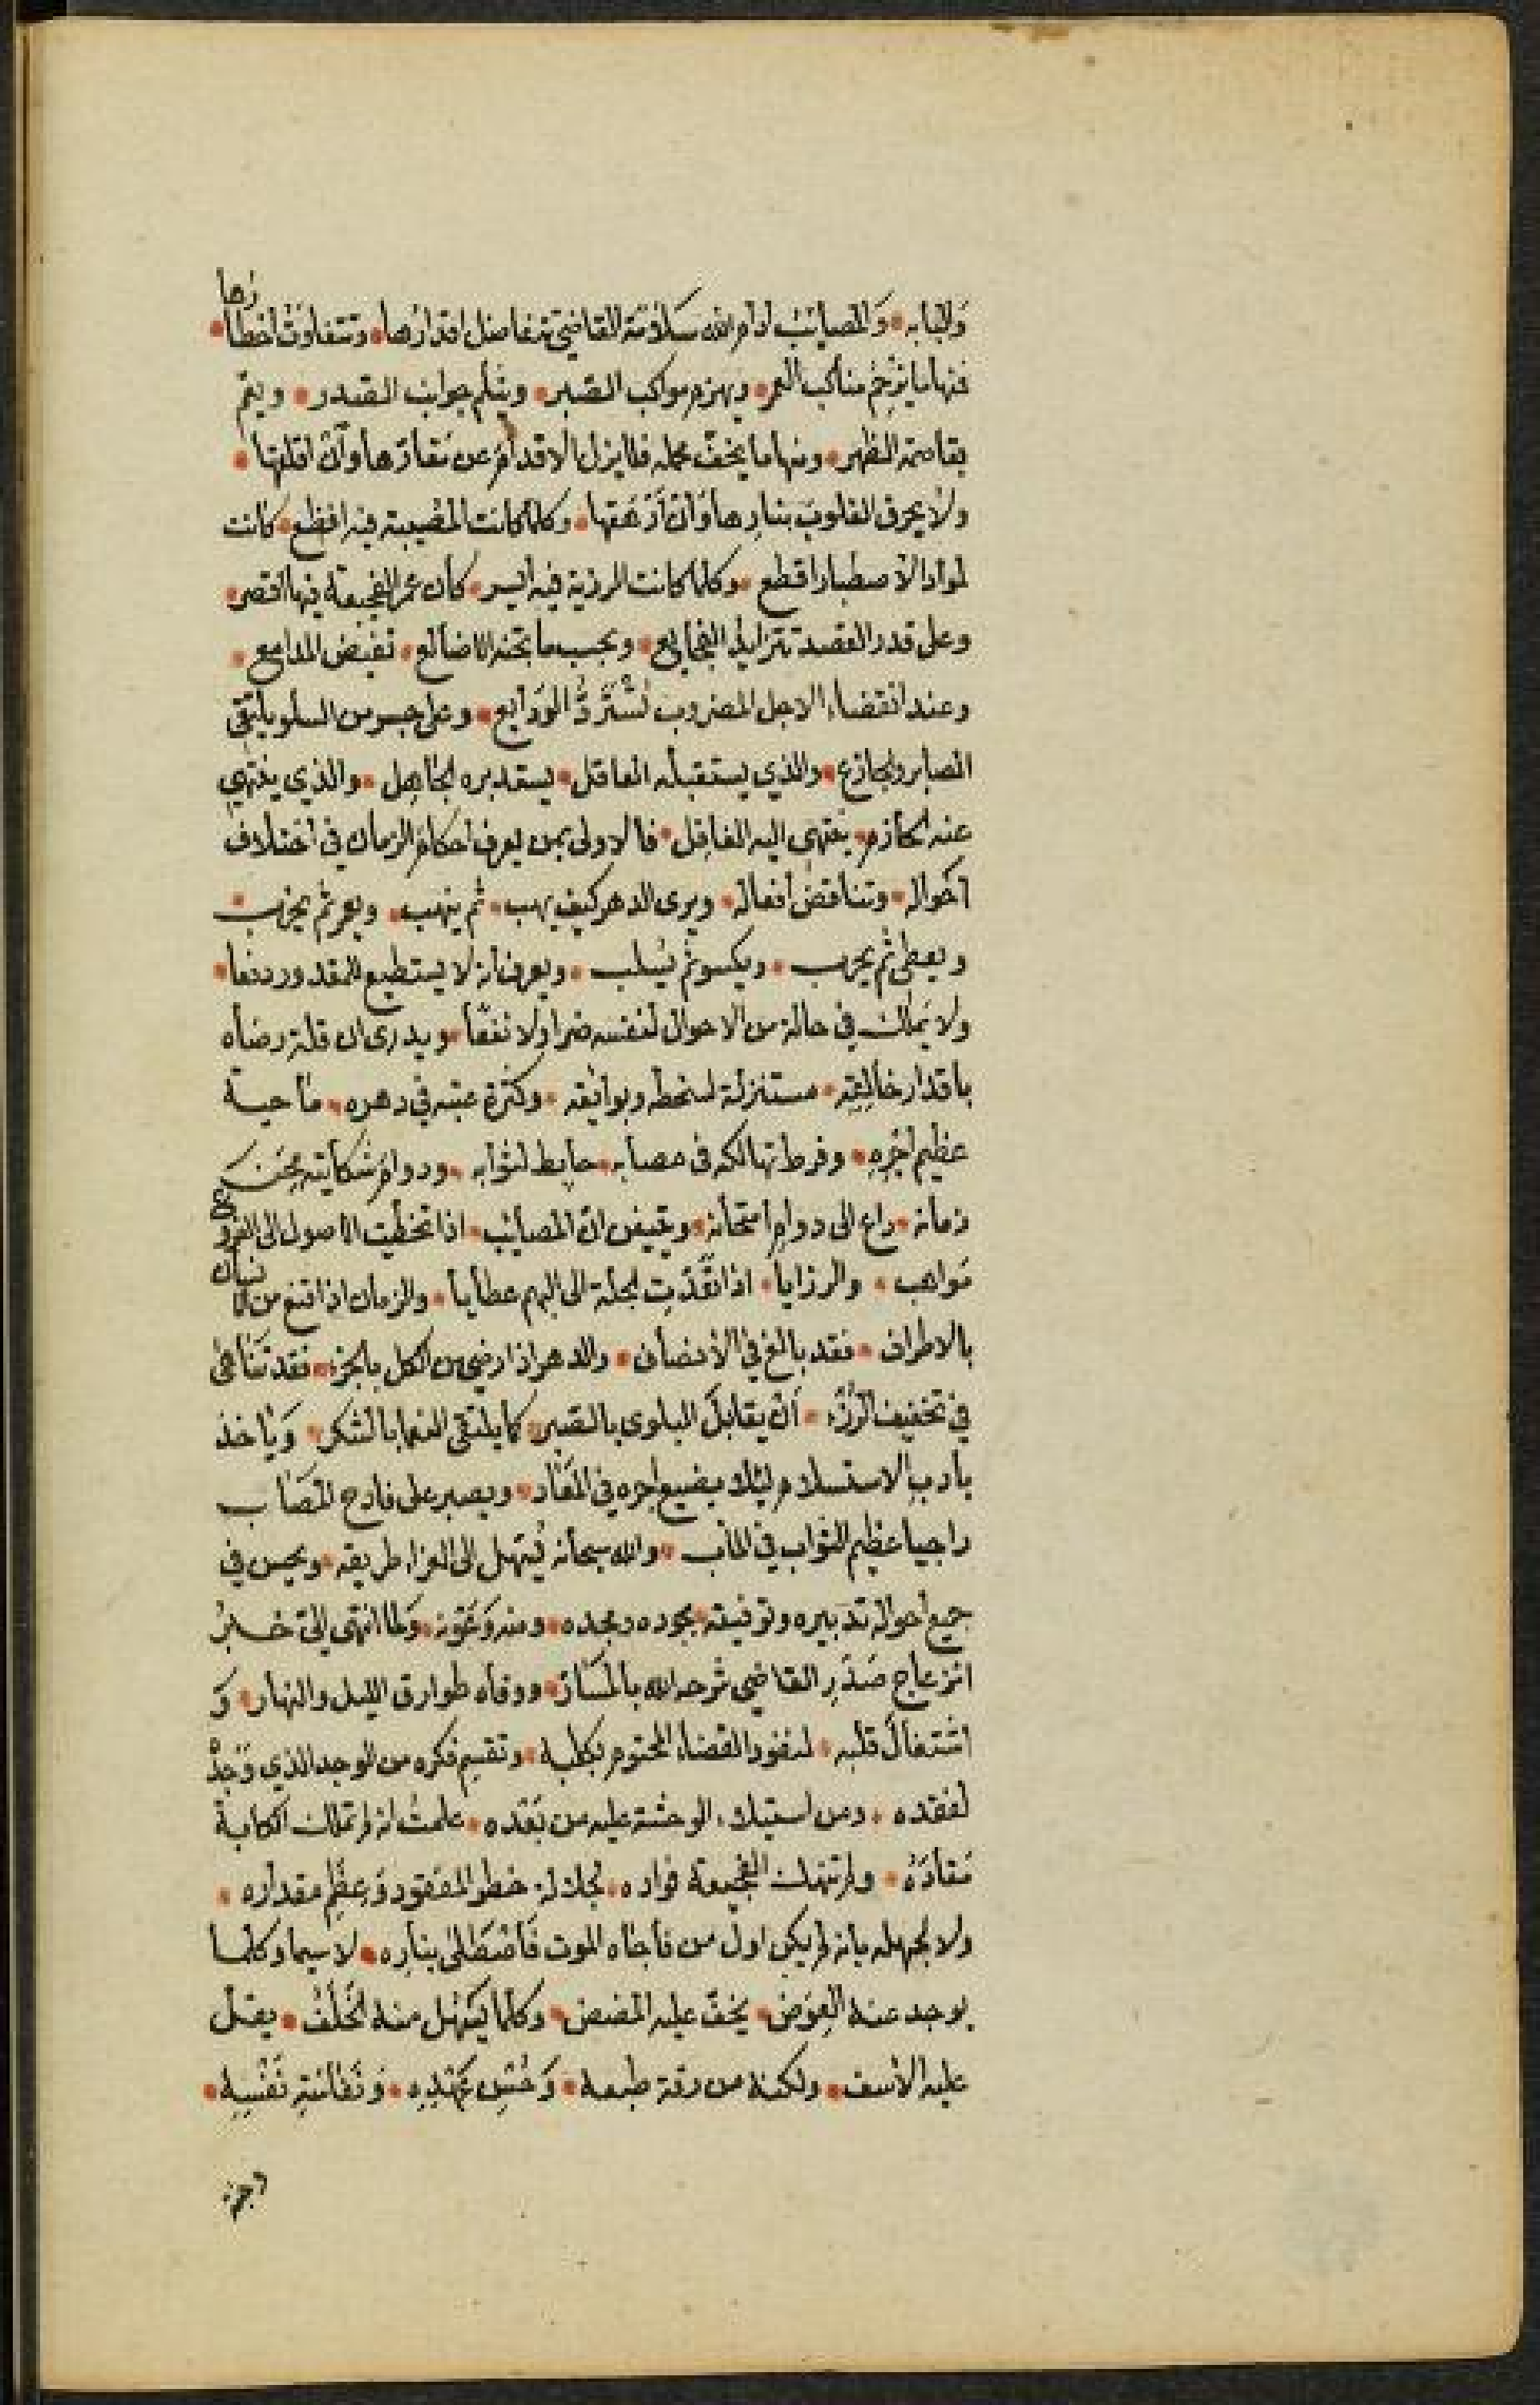 ولبابه • وَالمصايئب ادام الله سَلامَة القاضى تتفاضل اقدارُها • وتتفاوتُ اخطارُها •
فمنها ما يزحم مناكب العمر • ويهزم مواكب الصبر • ويثلم جوانب الصدر • ويتم
بقاصمة الظهر • ومنها ما يخفّ محمله فلا يزل الاقدامَ عن مَقارّها وَان اقلقها •
ولا يحرق القلوبَ بنارها وَان اَرْهقها • وكلما كانت المصيبة فيه افظع • كانت
لمواد الاصطبار اقطع • وكلما كانت الرزية فيه ايسر • كان عمر الفجيعة فيها اقصر •
وعلى قدر المقصد تتزايد الفجايع • وبحسب ما تجنه الاضالع • تفيض المدامع •
وعند انقضاء الاجل المضروب تُسْتَرَدُّ الوَدَايع • وعلى جسر من السلو يلتقى
الصابر والجازع • والذي يستقبله العاقل • يستدبره الجاهل • والذي ينتهي
عنه الحازم • ينتهى اليه الغافل • فالاولى بمن يعرف احكام الزمان في اختلاف
احواله • وتناقض افعاله • ويرى الدهر كيف يهب • ثم ينهب • ويعمر ثم يخرب •
ويعطى ثم يحرب • ويكسو ثم يَسلب • ويعرف انه لا يستطيع للمقدور دفعا •
ولا يَملك في حالة من الاحوال لنفسه ضرا ولا نفعًا • ويدرى ان قلة رضاه
باقدار خالِقِه • مستنزلة لسخطه وبوائقه • وكثرة عتبه في دهره • ماحية
عظيم اجْرِهِ • وفرط تهالكه في مصابه • حابط لثوابه • ودوام شكايته محن
زمانه • داع الى دوام امتحانه • ويتيقن انّ المصايئب • اذا تخطت الاصول الى الفروع
مَواهب • والرزايا • اذا تعَدّت الجلة الى البهم عطايا • والزمان اذا قنع من الانسان
بالاطراف • فقد بالغ في الانصاف • والدهر اذا رضى من الكل بالجزء • فقد تَنَاهى
في تخفيف الرُزْء • اَنْ يقابلَ البلوى بالصبر • كما يلتقى النعما بالشكر • وَيَاخذ
بادبِ الاستسلام ليلا يضيع اجره في المعَاد • ويصبر على فادح المصَاب
راجيا عظيم الثواب في الماب • والله سبحانه يُسهل الى العزاء طريقه • ويحسن في
جميع احواله تدبيره وتوفيقه • بجوده ومجده • ومنه وَعَونه • وَلما انتهى إلىّ خبرُ
انزعاج صَدْرِ القاضي شرحه الله بالمَسَارّ • ووقاه طوارق الليل والنهار • وَ
اشتغالُ قلبه • لنفوذ القضاء المحتوم بكلبه • وتقسيم فكره من الوجد الذي وَجَدْ
لفقده • ومن استيلاء الوحشة عليه من بَعْده • علمتُ انه لم تملك الكابة
مَقادَهُ • ولم تنهك الفجيعة فواده • لجلالة خطر المفقود وَعِظَمِ مقداره •
ولا لجهله بانه لم يكن اول من فاجاه الموت فَاصْطَلى بناره • لا سيما وكلما
يوجد عنه العِوَض • يخفّ عليه المضض • وكلما يَسْهُل منه الخَلَفُ • يقلّ
عليه الاسف • ولكنه من رقة طبعه • وَحُسْنِ عَهْدِهِ • وَنَفَاسَةِ نَفْسِهِ •